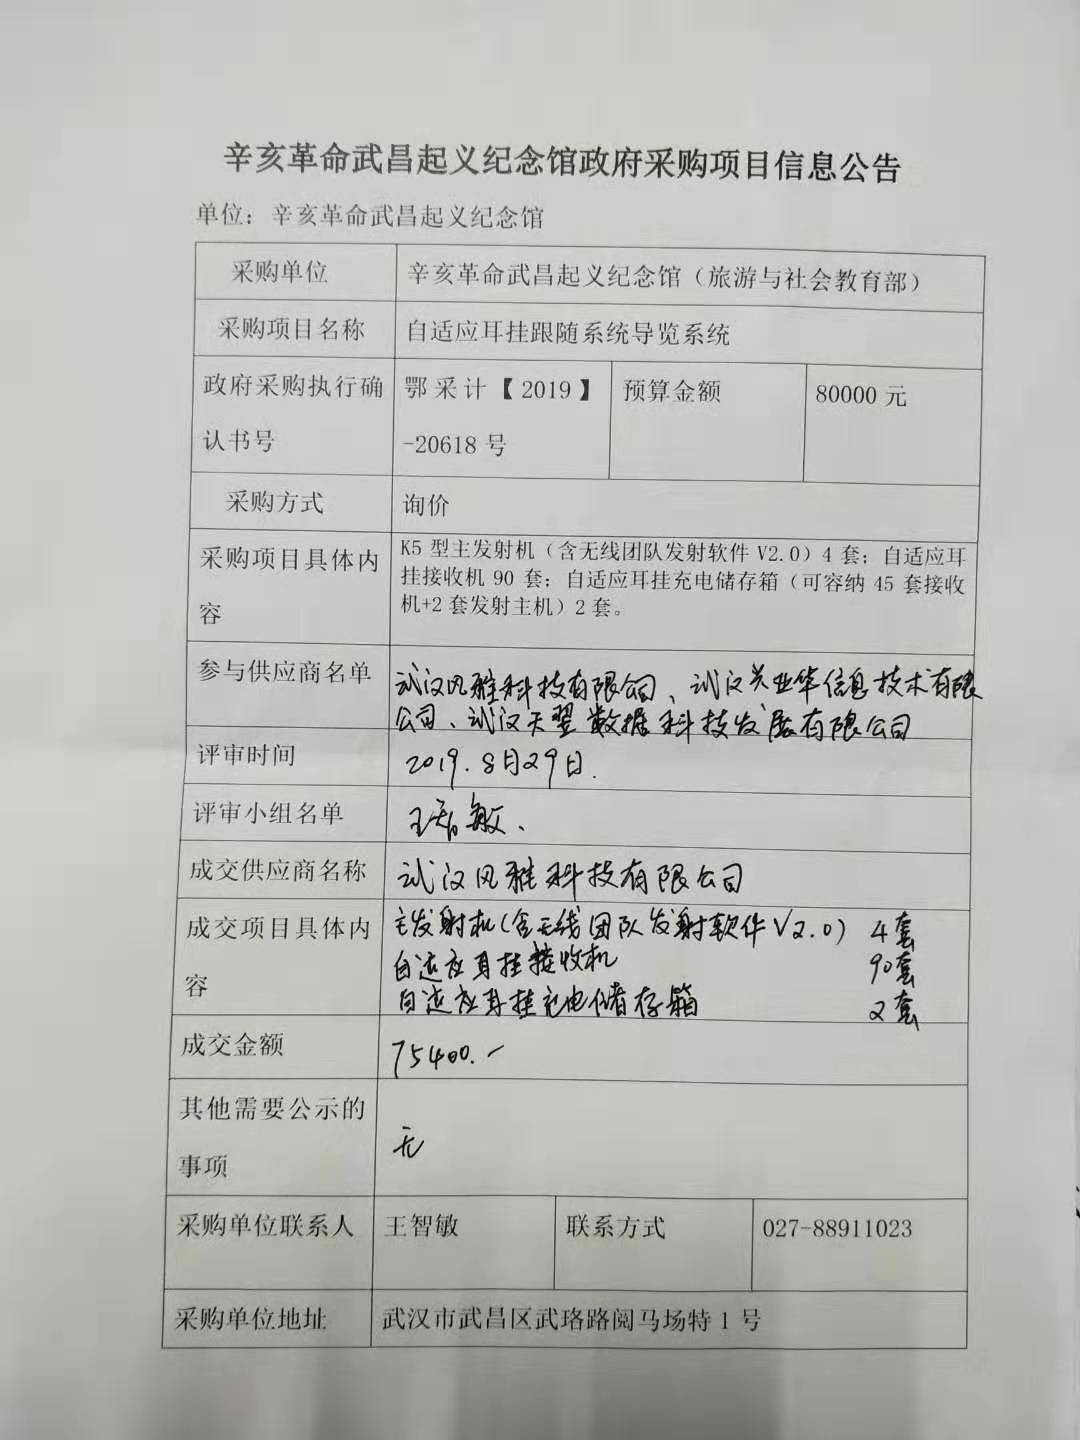 辛亥革命武昌起义纪念馆政府采购项目信息公告
单位：辛亥革命武昌起义纪念馆
采购单位 辛亥革命武昌起义纪念馆（旅游与社会教育部）
采购项目名称 自适应耳挂跟随系统导览系统
政府采购执行确 鄂采计【2019】 预算金额 80000 元
认书号 -20618 号
采购方式 询价
采购项目具体内 K5 型主发射机（含无线团队发射软件 V2.0）4 套；自适应耳
挂接收机 90 套；自适应耳挂充电储存箱（可容纳 45 套接收
容 机+2 套发射主机）2 套。
参与供应商名单 武汉风雅科技有限公司、武汉兴业华信息技术有限
公司、武汉天翌数据科技发展有限公司
评审时间 2019.8月29日.
评审小组名单 王智敏、
成交供应商名称 武汉风雅科技有限公司
成交项目具体内 主发射机(含无线团队发射软件V2.0) 4套
自适应耳挂接收机 90套
容 自适应耳挂充电储存箱 2套
成交金额 75400.-
其他需要公示的
事项 无
采购单位联系人 王智敏 联系方式 027-88911023
采购单位地址 武汉市武昌区武珞路阅马场特 1 号